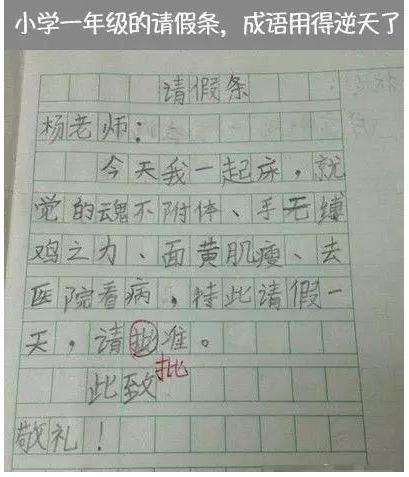 小学一年级的请假条，成语用得逆天了
请假条
杨老师：
今天我一起床，就
觉的魂不附体、手无缚
鸡之力、面黄肌瘦、去
医院看病，特此请假一
天，请批准。
批
此致
敬礼！